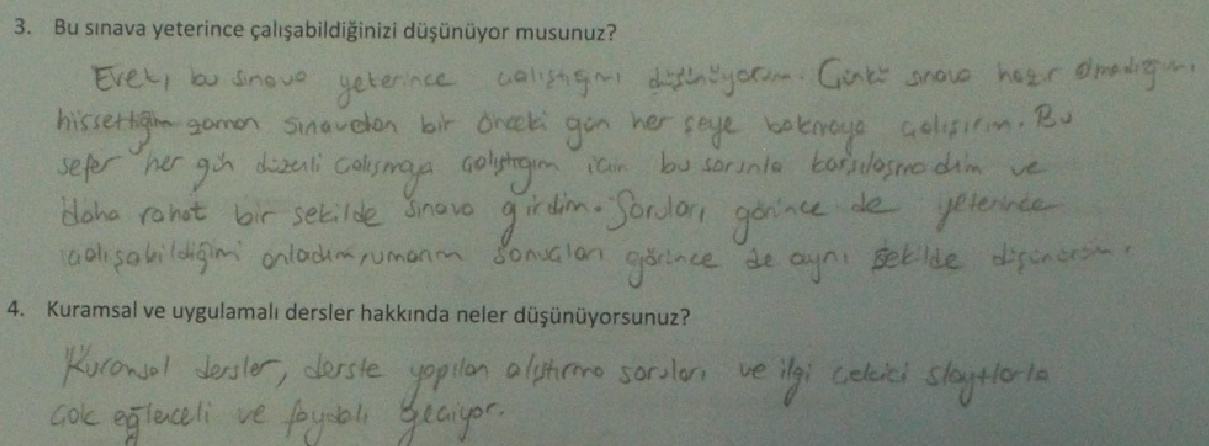 3. Bu sınava yeterince çalışabildiğinizi düşünüyor musunuz?
Evet, bu sınava yeterince çalıştığımı düşünüyorum. Çünkü sınava hazır olmadığımı
hissettiğim zaman sınavdan bir önceki gün her şeye bakmaya çalışırım. Bu
sefer her gün düzenli çalışmaya çalıştığım için bu sorunla karşılaşmadım ve
daha rahat bir şekilde sınava girdim. Soruları görünce de yeterince
çalışabildiğimi anladım, umarım sonuçları görünce de aynı şekilde düşünürüm.
4. Kuramsal ve uygulamalı dersler hakkında neler düşünüyorsunuz?
Kuramsal dersler, derste yapılan alıştırma soruları ve ilgi çekici slaytlarla
çok eğlenceli ve faydalı geçiyor.